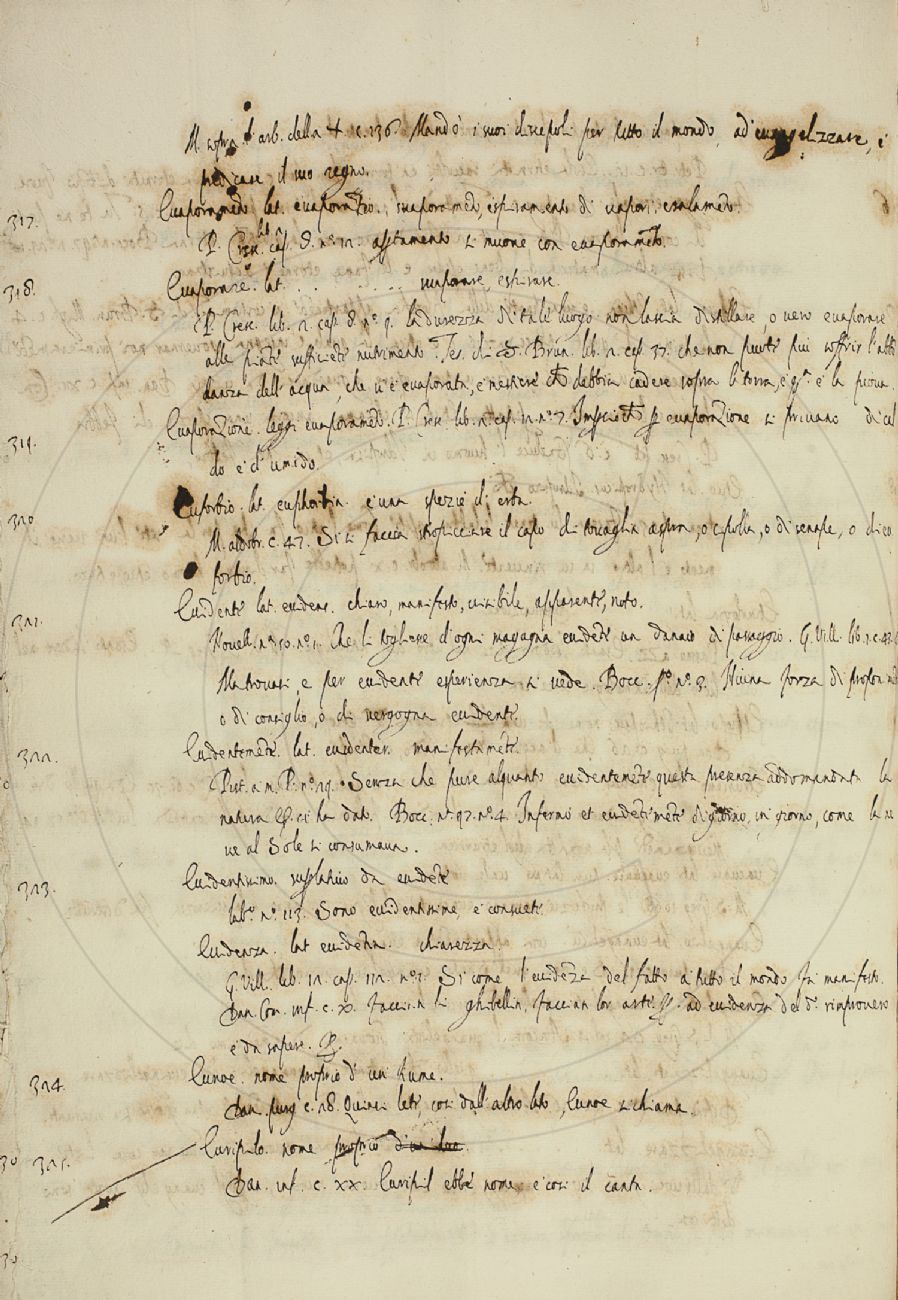 M. sopra l'arb. della †. c. 136. Mandò i suoi discepoli per tutto il mondo, ad euangelizzare, e
predicare il suo regno.
317. Euaporamēto. lat. euaporatio. suaporamēto, espiramento di uapori, esalamēto.
P. Cresc. lib. cap. 8. n.º 12. assottamento si muoue con euaporamēto.
318. Euaporare. lat. . . . . . . suaporare, espirare.
P. Cresc. lib. 2. cap. 8. n.º 9. la durezza di tale luogo non lascia distillare, o uero euaporare
alle piāte sufficiēte nutrimento. Tes. di S. Brun. lib. 2. cap. 37. che non puote piu soffrir l'abbō
danza dell'acqua, che u'è euaporata, e mestiere ch debbia cadere sopra la terra, e qsta è la pioua.
319. Euaporazione. leggi euaporamēto. P. Cresc. lib. 2. cap. 12. n.º 7. euaporazione si priuano di cal
do e d'umido.
320 Euforbio. lat. euphorbia. è una spezie di erba.
M. aldobr. c. 47. Si si faccia stropicciare il capo di touaglia aspra, o cipolla, o di senape, o di eu
forbio.
321. Euidente lat. euidens. chiaro, manifesto, uisibile, apparente, noto.
Nouell. n.º 50. n.º 1. Che li togliesse d'ogni magagna euidēte un danaio di passaggio. G. Vill. lib.
Ma trouasi, e per euidente esperienza si uede. Bocc. Niuna forza di
o di consiglio, o di uergogna euidente.
322. Euidentemēte. lat. euidenter. manifestamēte.
Pist. Senza che pure alquanto euidentemēte questa presenza addomandata la
natura ci ha dato. Bocc. n. 97. n.º 4. Infermò et euidētemēte di giorno, in giorno, come la ne
ue al Sole si consumaua.
323. Euidentissimo. suplatiuo da euidēte
lab.º n.º 113. Sono euidentissime, e consuete.
Euidenza. lat euidētia. chiarezza.
G. Vill. lib. 12. cap. n.º 1. Si come l'euidēza del fatto a tutto il mondo fa manifesto.
Dan. Con. inf. c. X. Faccian li ghibellin, faccian lor arte ad euidenza del d.º rimprouero
e da sapere.
324. Eunoe. nome proprio d'un fiume.
Dan. purg c. 28. Quinci lete, cosi dall'altro lato, Eunoe si chiama.
325. Euripilo. nome proprio d'un
Dan. inf. c. XX. Euripil ebbe nome, e cosi il canta.